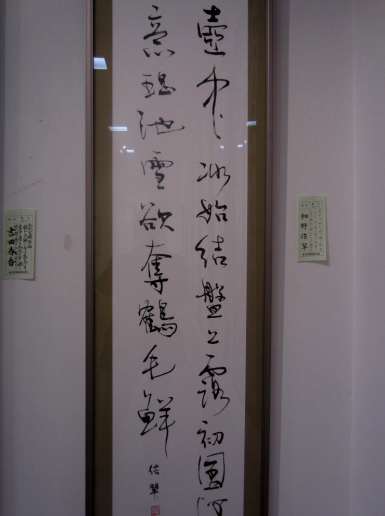 壺中冰始結盤上露初圓何
意瑤池雪欲奪鶴毛鮮
佳翠
細野佳翠
吉田春香